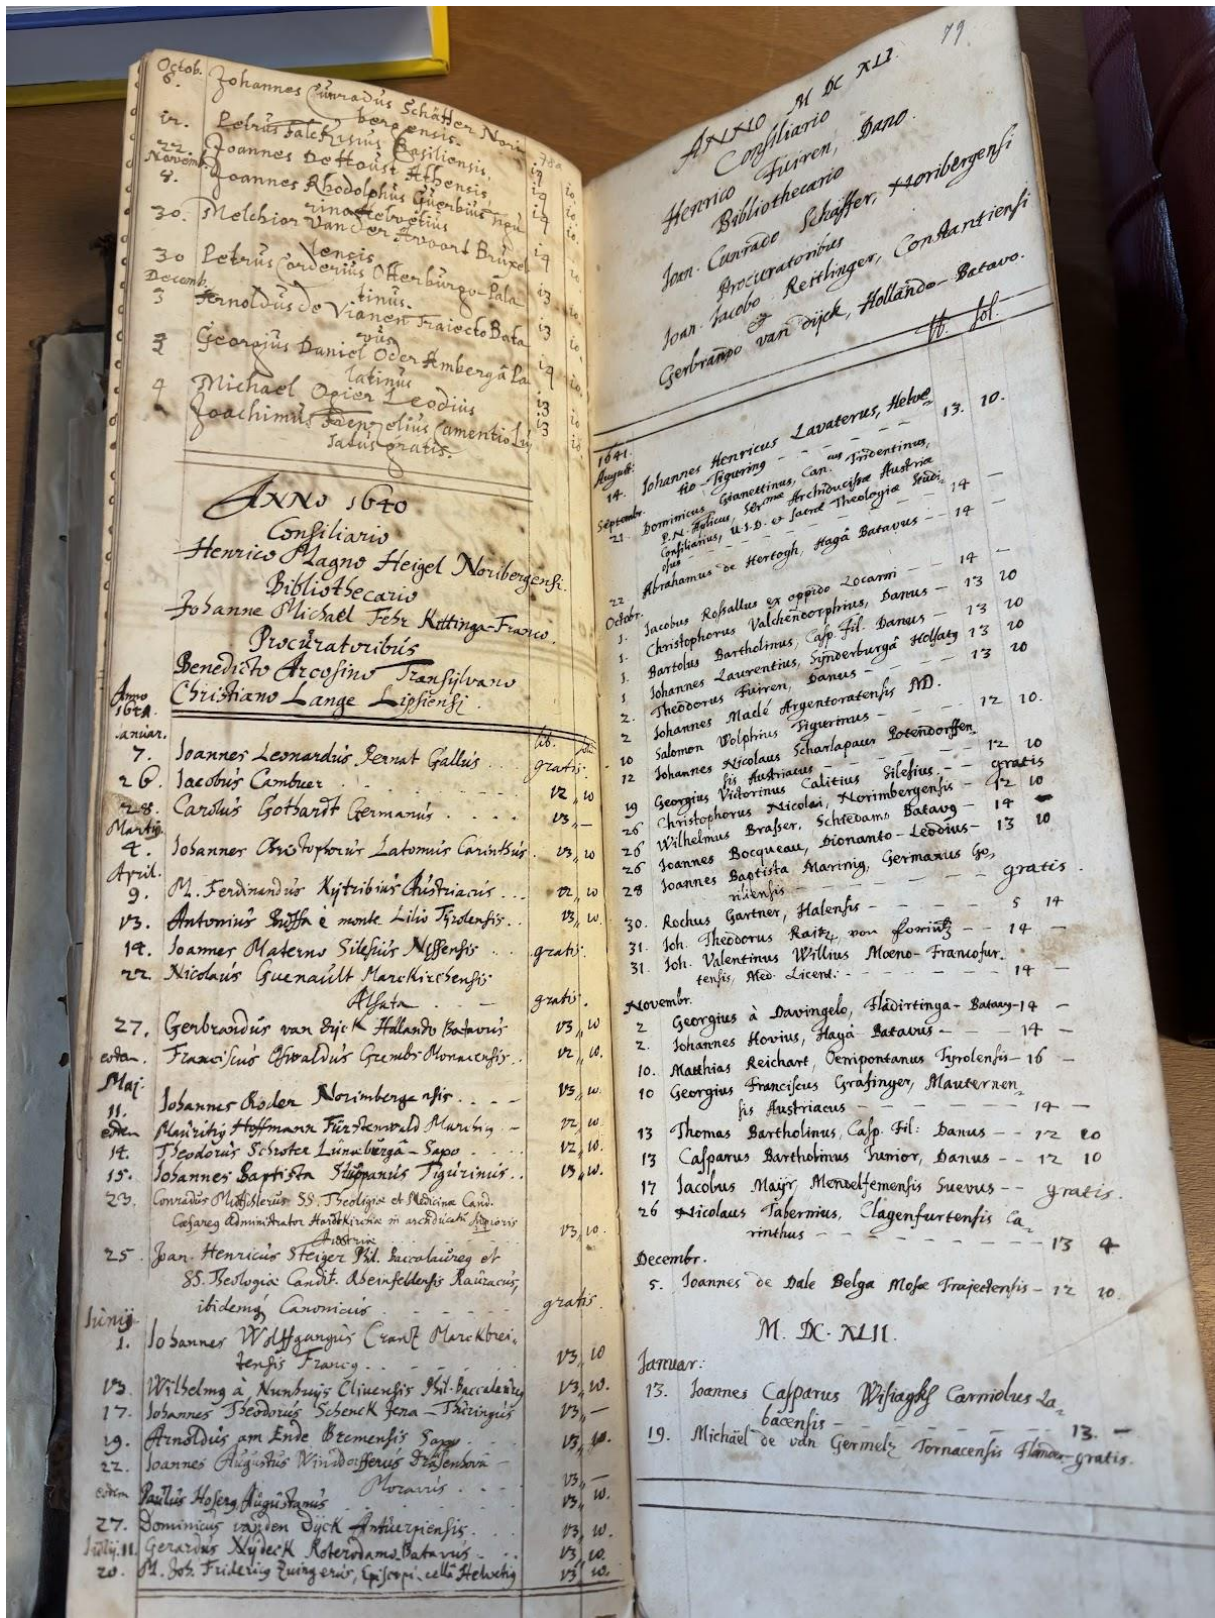 Octob.
6. Johannes Cunradus Schäffer Nori
bergensis.
12. Petrus Falckisius Basiliensis,
22. Joannes De Houst Athensis
Novemb.
8. Joannes Rhodolphus Guerbius
Helvetius
30. Melchior van der Avoort Bruxel
lensis
30 Petrus Corderius Otterburgo-Pala
tinus.
Decemb.
3 Arnoldus de Vianen Traiecto Bata
vus
3 Georgius Daniel Oder Amberga Pa
latinus
4 Michael Ogier Leodius
Joachimus
gratis.
ANNO 1640
Consiliario
Henrico Magno Heigel Noribergensi.
Bibliothecario
Johanne Michaël Fehr Kittinga-Franco.
Procuratoribus
Benedicto Arcosino Transylvano
Christiano Lange Lipsiensi.
Anno
1641.
Januar. lib.
7. Joannes Leonardus Pernat Gallus . . . gratis.
26. Jacobus Cambuer . . . . 12 10
28. Carolus Gothardt Germanus . . . . 13 —
Martij
4. Johannes Christophorus Latomus Carinthus. 13 10
April.
9. M. Ferdinandus Kytribius Austriacus . . . 12 10
13. Antonius à monte Lilio Tyrolensis . . 13 10.
14. Joannes Materno Silesius Nissensis . . gratis.
22. Nicolaus Guenault Marckirchensis
Alsata . . — gratis.
27. Gerbrandus van dyck Hollando Batavus 13 10
eodem. Franciscus Oswaldus Grembs Monacensis . . 12 10.
Maj.
11. Johannes Röder Norimbergensis . . . — 13 10
eodem Mauritig Hoffmann Fürstenwald Marchig. — 12 10.
14. Theodorus Schröter Lünæburgâ-Saxo . . . 12 10.
15. Johannes Baptista Stuppanus Tigurinus . . 13 10.
23. Conradus SS. Theologiæ et Medicinæ Cand.
Cæsareg Administrator Hardtkirchæ in archiducatu superioris
Austriæ 13 10.
25 Joan. Henricus Steiger Phil. Baccalaureg et
SS. Theologiæ Candit. Rheinfeldensis Rauracus,
ibidemq Canonicus . . . gratis.
Junij
1. Johannes Wolffgangus Crantz Marckbrei-
tensis Francg . . . 13 10
13. Wilhelmg à Nunhuys Clivensis Phil. Baccalaureg 13 10.
17. Johannes Theodorus Schenck Jena-Thüringus 13 —
19. Arnoldus am Ende Bremensis Saxo . . 13 10.
22. Joannes Augustus
Moravus . . . 13 —
eodem Paulus Hoserg Augustanus 13 10.
27. Dominicus vanden Dyck Antuerpiensis . . 13 10.
Julij. 11 Gerardus Nydeck Roterodamo-Batavus . . 13 10.
20. M. Joh. Fridericg Zuingerus, Episcopi-cella Helvetig 13 10.
79
ANNO M DC XLI.
Consiliario
Henrico Fuiren, Dano.
Bibliothecario
Joan. Cunrado Schäffer, Noribergensi
Procuratoribus
Joan. Jacobo Reitlinger, Constantiensi
&
Gerbrando van dijck, Hollando-Batavo.
sol.
1641.
August:
14. Johannes Henricus Lavaterus, Helve=
tio-Tiguring - - - - - 13. 10.
Septembr.
21. Dominicus Gianettinus, Can.cus Tridentinus,
P.N. Aulicus, Ser.mæ Archiducissæ Austriæ
Consiliarius, U.I.D. et sacræ Theologiæ Studi-
osus - - - - - 14 —
22 Abrahamus de Hertogh, Hagâ Batavus - - 14
Octobr.
1. Jacobus Rossallus ex oppido Locarni - - 14 —
1. Christophorus Valchendorphius, Danus - 13 10
1. Bartolus Bartholinus, Casp. Fil. Danus - 13 10
1 Johannes Laurentius, Synderburgâ Holsatg 13 10
2. Theodorus Fuiren, Danus - - - 13 10
2 Johannes Madé Argentoratensis MD.
10 Salomon Wolphius Tigurinus - - - 12 10.
12 Johannes Nicolaus Scharlapaur Potendorffen
sis Austriacus - - - - 12 10
19 Georgius Victorinus Calitius Silesius - - gratis
26 Christophorus Nicolai, Norimbergensis - 12 10
26 Wilhelmus Brasser, Schiedamo Batavg - 14 —
26 Joannes Bocqueau, Dionanto-Leodius - 13 10
28 Joannes Baptista Maring, Germanus Go,
ritiensis - - - - gratis.
30. Rochus Gartner, Halensis - - - - 5 14
31. Joh. Theodorus Raitz, von - - 14 —
31. Joh. Valentinus Willius Moeno-Francofur.
tensis, Med. Licent. - - - - 14 —
Novembr.
2 Georgius à Davingelo, Fladirtinga-Batavg-14 —
2. Johannes Hovius, Hagâ Batavus - - - 14 —
10. Matthias Reichart, Oenipontanus Tyrolensis - 16 —
10 Georgius Franciscus Grasinger, Mauternen=
sis Austriacus - - - - 14 —
13 Thomas Bartholinus, Casp. Fil: Danus - - 12 10
13 Casparus Bartholinus Junior, Danus - - 12 10
17 Jacobus Maijr, Suevus - - gratis.
26 Nicolaus Tabernius, Clagenfurtensis Ca=
rinthus - - - - - 13 4
Decembr.
5. Joannes de Dale Belga Mosæ Trajectensis - 12 10.
M. DC. XLII.
Januar:
13. Joannes Casparus Carniolus La=
bacensis - - - - - 13. —
19. Michaël de van Germelz Tornacensis gratis.